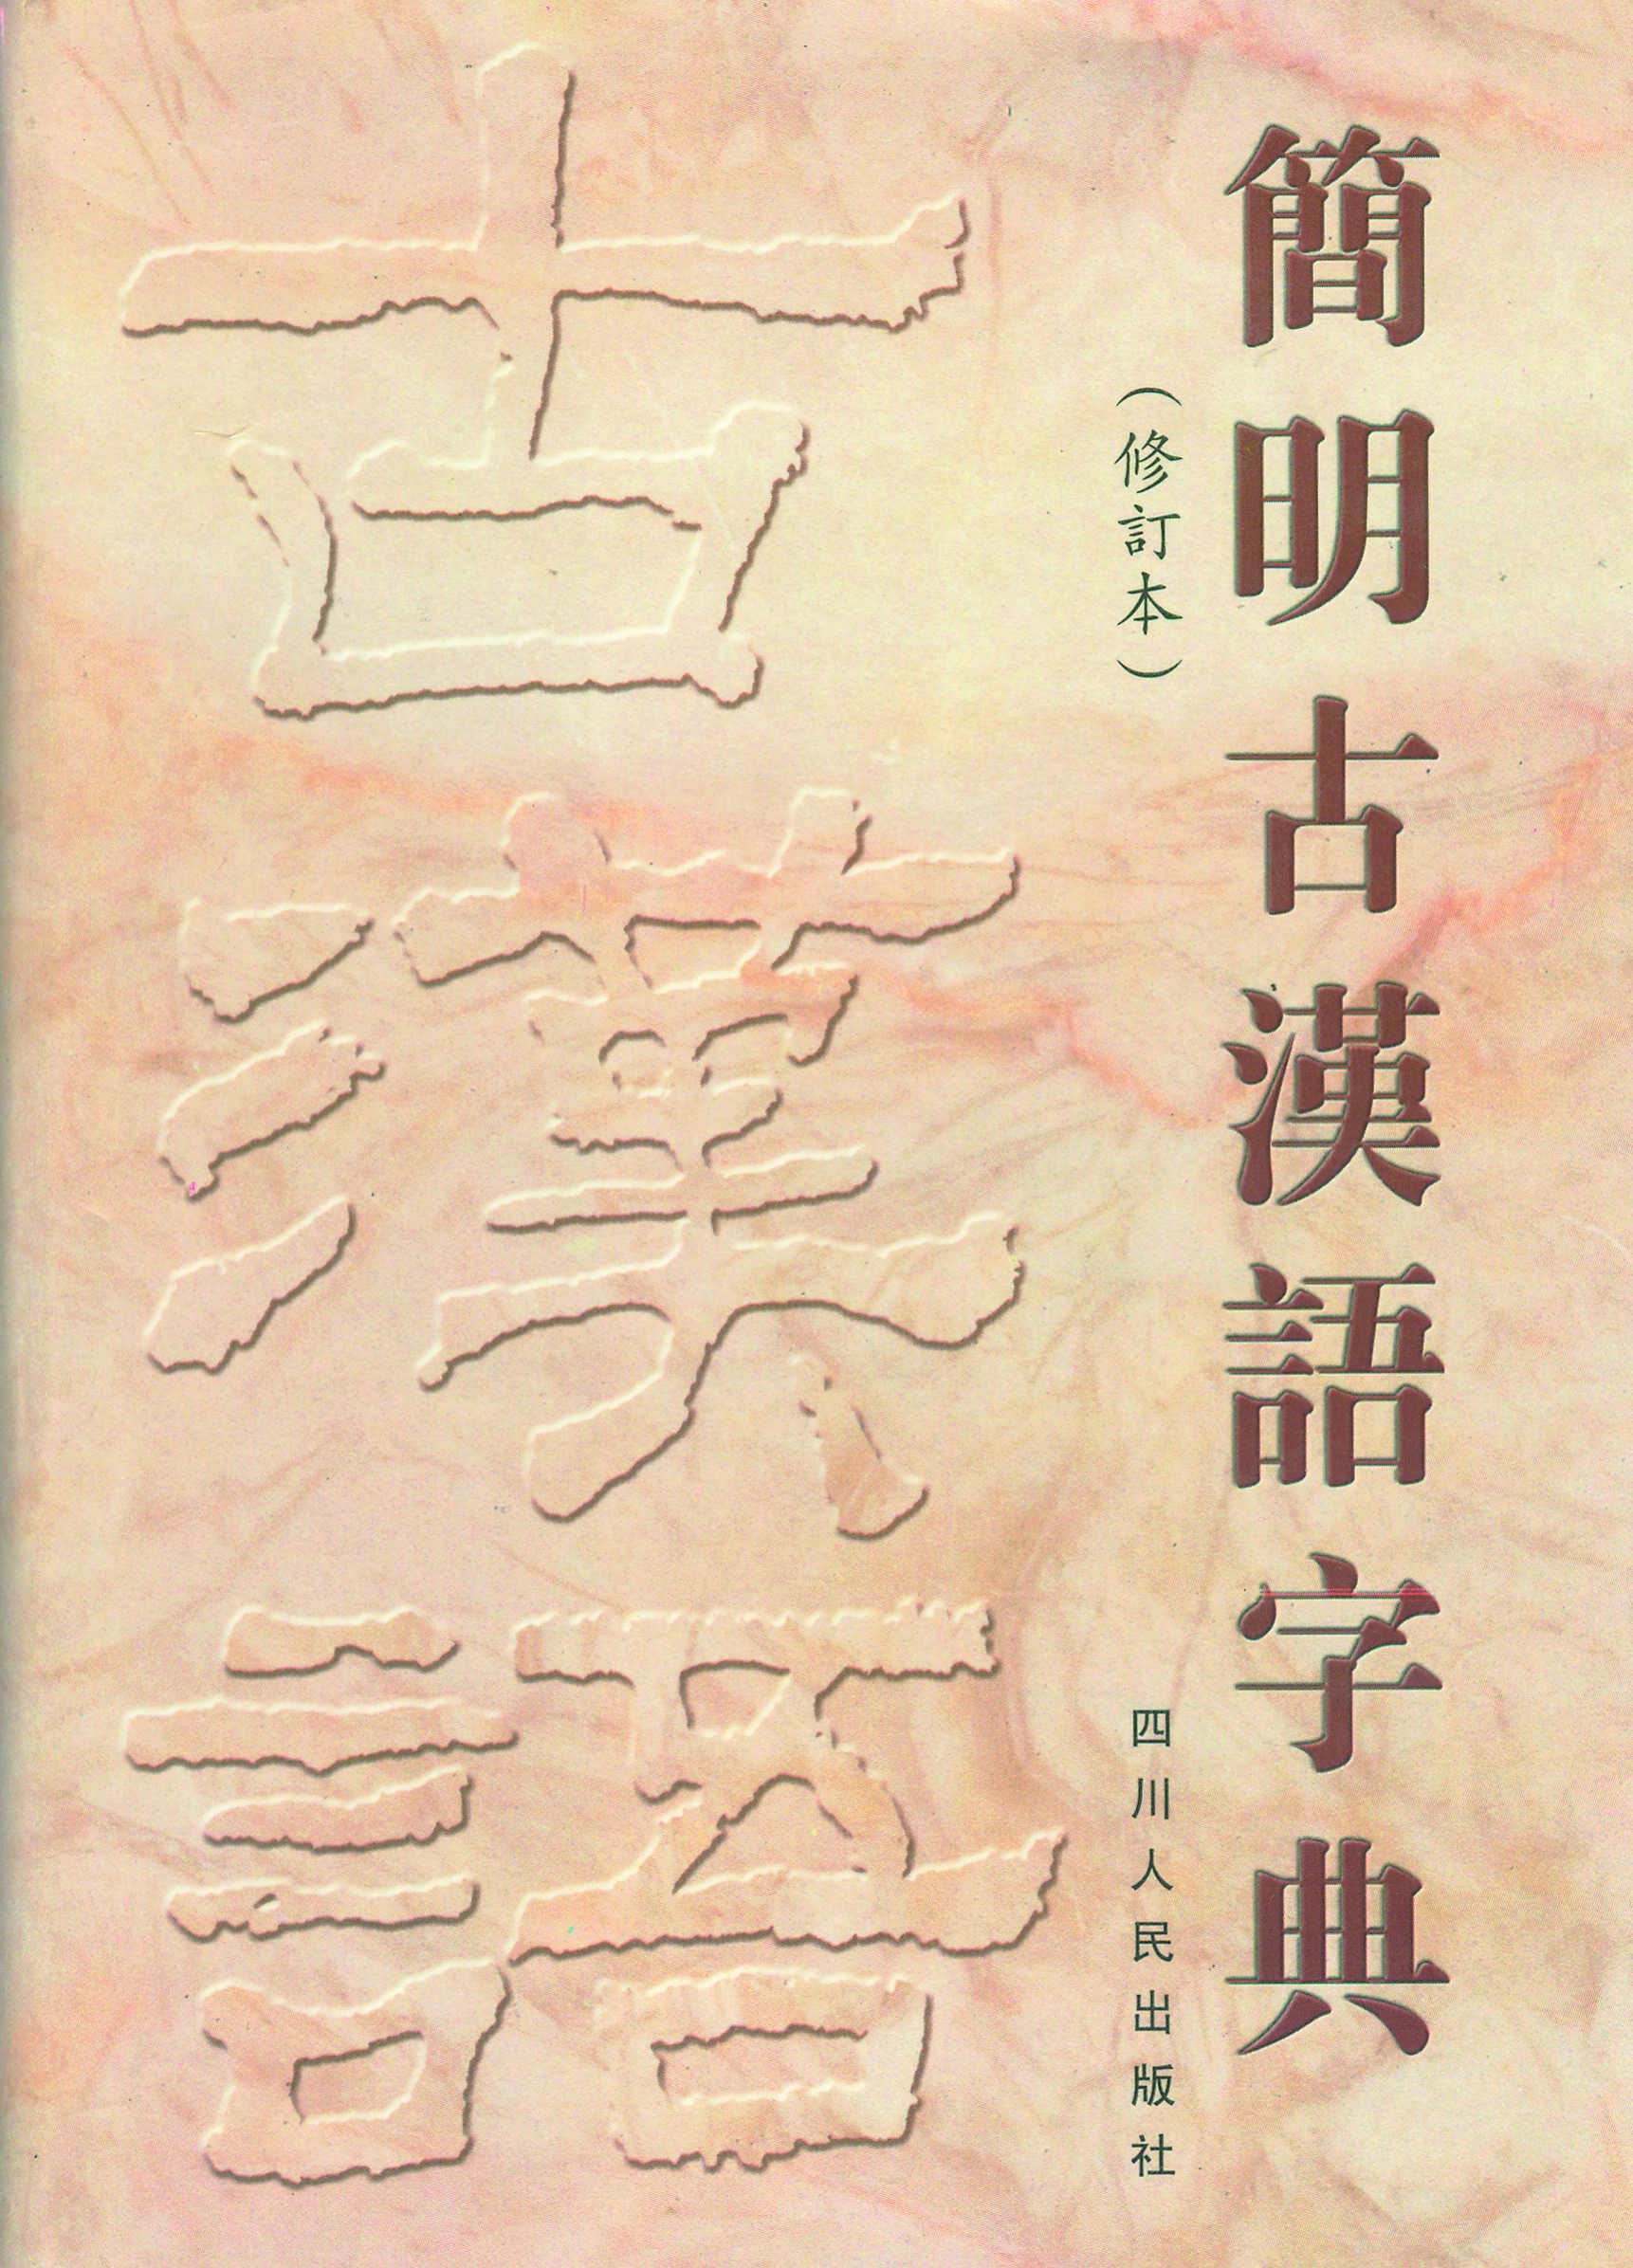 簡明古漢語字典
（修訂本）
四川人民出版社
古漢語